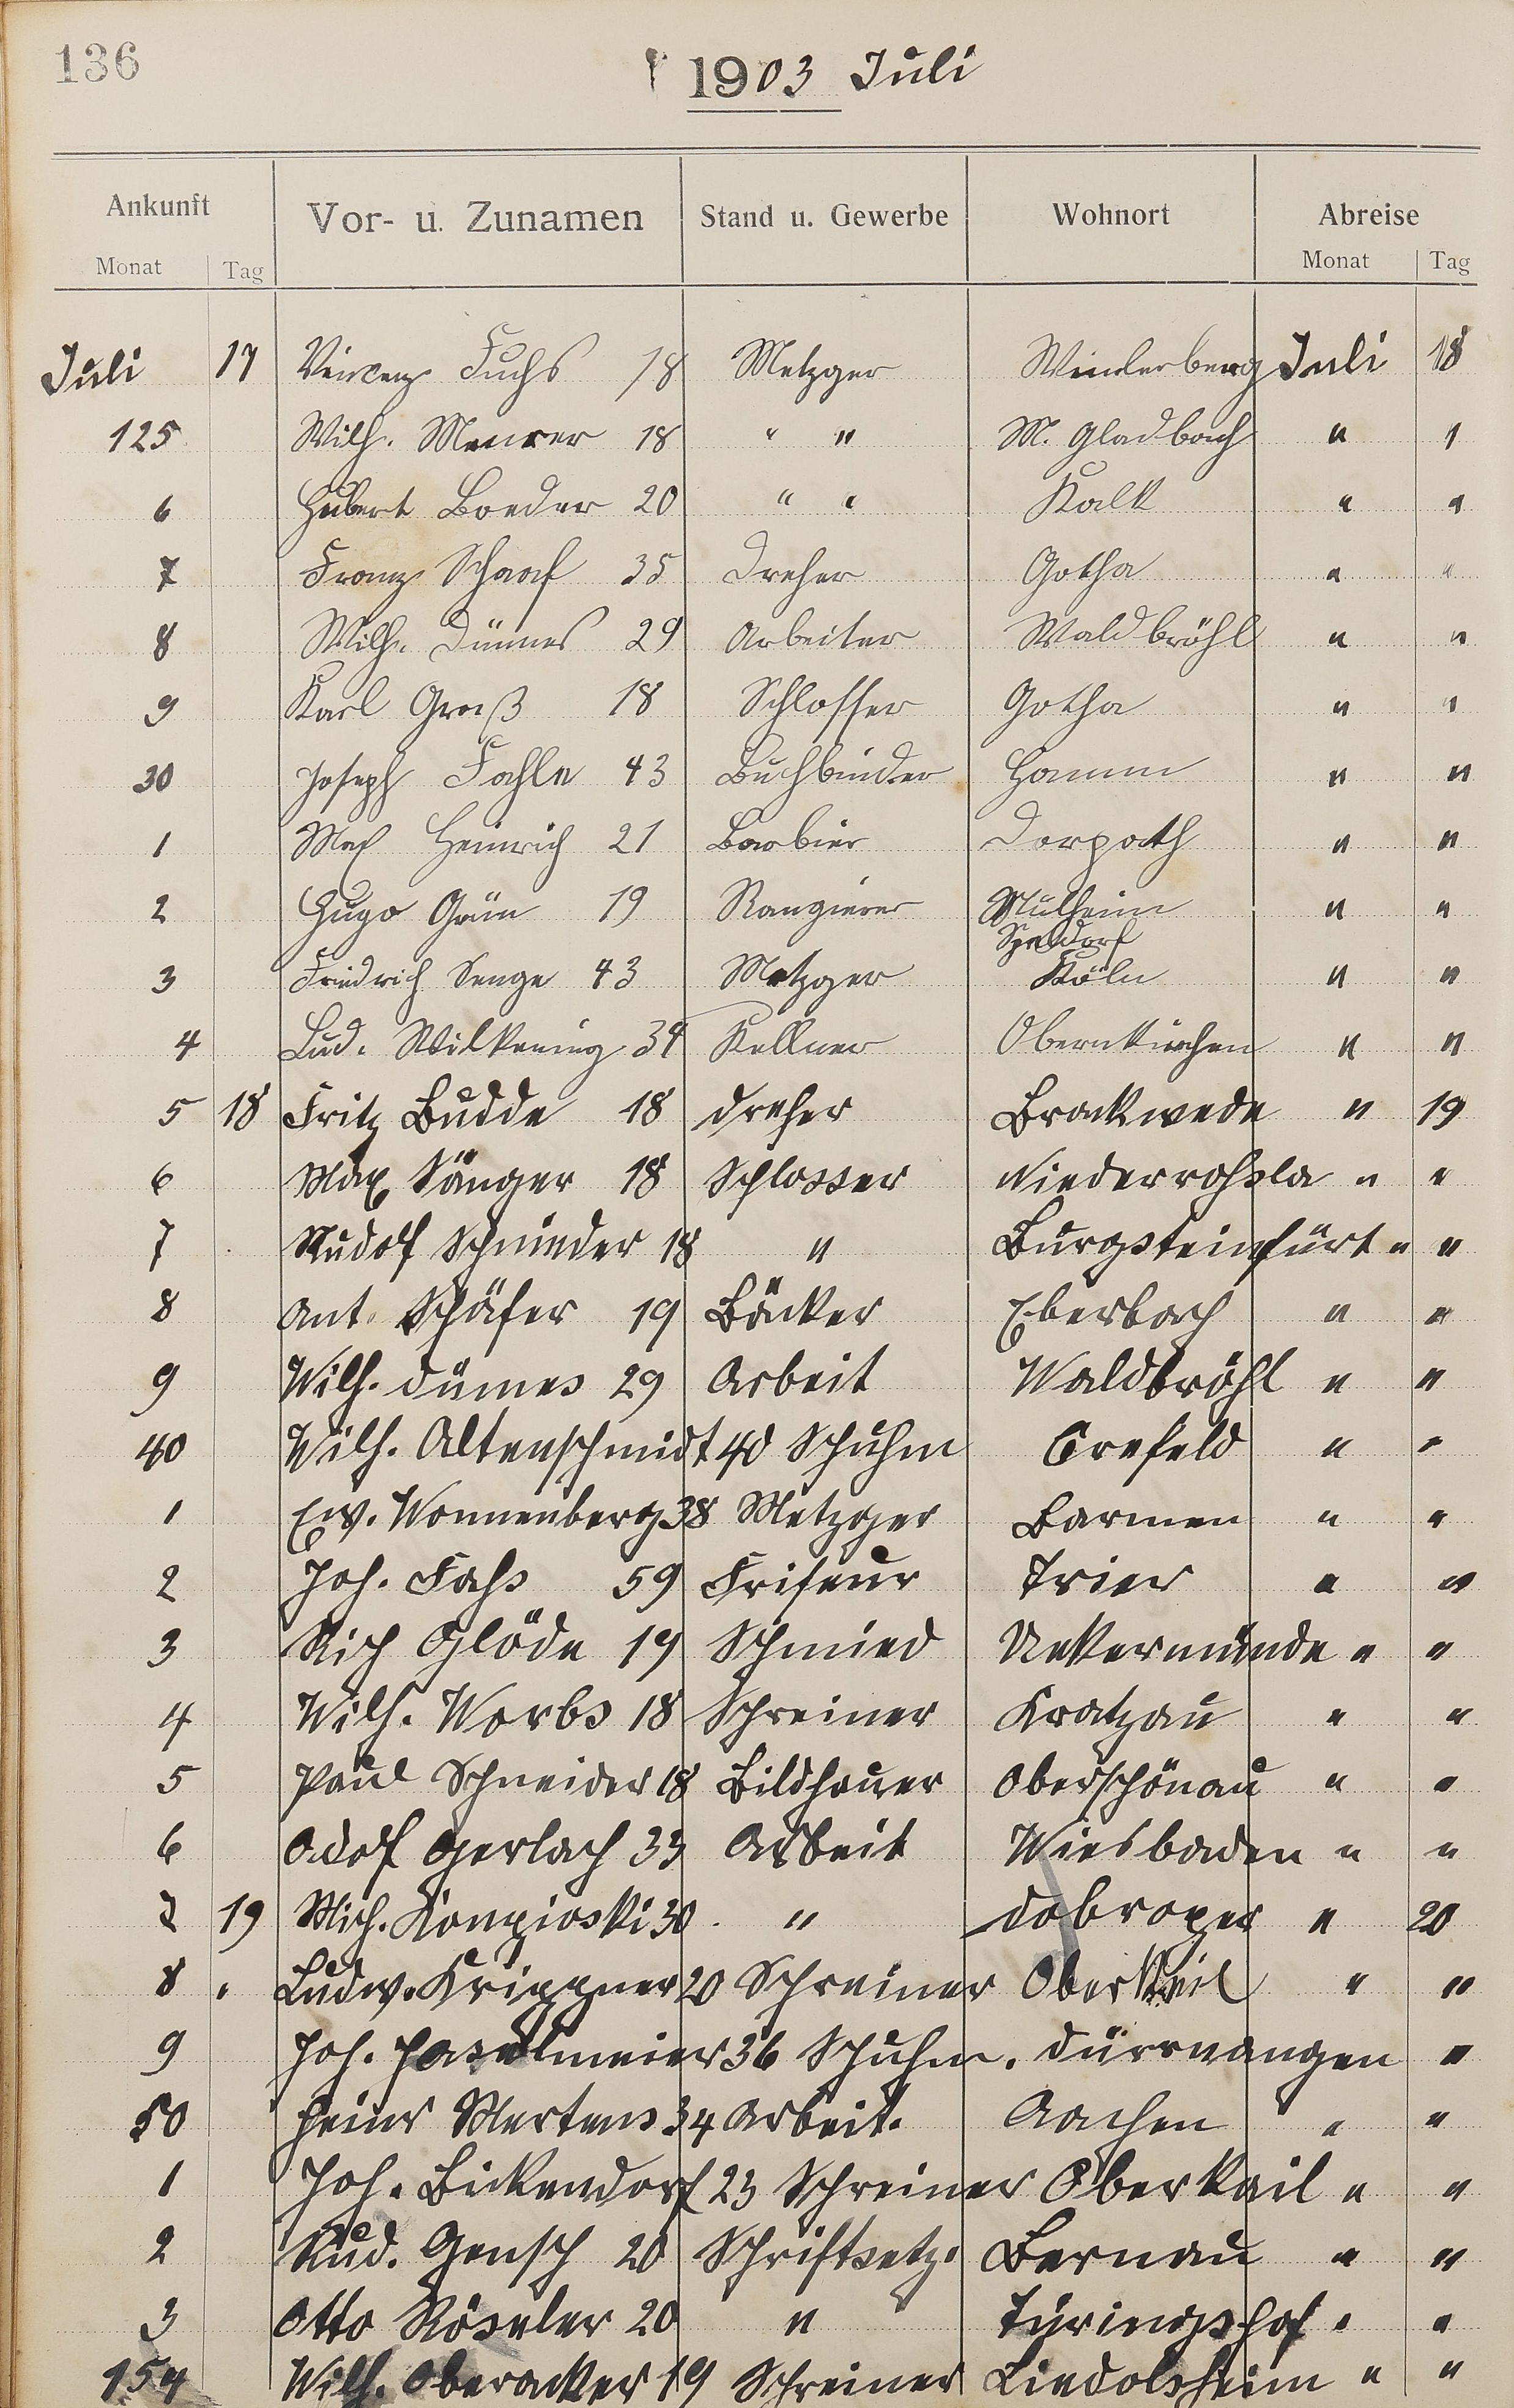 136
1903 Juli
Ankunft Vor- u. Zunamen Stand u. Gewerbe Wohnort Abreise
Monat Tag Monat Tag
Juli 17 Vincenz Fuchs 18 Metzger Winterberg Juli 18
125 Wilh. Meurer 18 " " M. Gladbach " "
6 Hubert Boeder 20 " " Kalk " "
7 Franz Schaaf 35 Dreher Gotha " "
8 Wilh. Dümes 29 Arbeiter Waldbröhl " "
9 Karl Groß 18 Schlosser Gotha " "
30 Joseph Fahle 43 Buchbinder Hamm " "
1 Max Heinrich 21 Barbier Dorpath " "
2 Hugo Grün 19 Rangierer Mülheim " "
Speldorf
3 Friedrich Senge 43 Metzger Köln " "
4 Lud. Wilkening 34 Kellner Obernkirchen " "
5 18 Fritz Budde 18 Dreher Brackwede " 19
6 Max Sänger 18 Schlosser Niederrohsla " "
7 Rudolf Schnieder 18 " Burgsteinfurt " "
8 Ant. Schäfer 19 Bäcker Eberbach " "
9 Wilh. Dümes 29 Arbeit Waldbröhl " "
40 Wilh. Altenschmidt 40 Schuhm Crefeld " "
1 Ew. Wonnenberg 38 Metzger Barmen " "
2 Joh. Fahs 59 Friseur Trier " "
3 Rich Glöde 19 Schmied Uekermünde " "
4 Wilh. Worbs 18 Schreiner Kratzau " "
5 Paul Schneider 18 Bildhauer Oberschönau " "
6 Adof Gerlach 33 Arbeit Wiesbaden " "
7 19 Mich. 30 " " 20
8 " Ludw. Krippner 20 Schreiner " "
9 Joh. Haselmeier 36 Schuhm. Dürrwangen "
50 Heinr Mertens 34 Arbeit. Aachen " "
1 Joh. Bickendorf 23 Schreiner Oberkail " "
2 Rud. Gensch 20 Schriftsetz. Bernau " "
3 Otto Röseler 20 " Türingshof " "
154 Wilh. Oberacker 19 Schreiner Liedolsheim " "